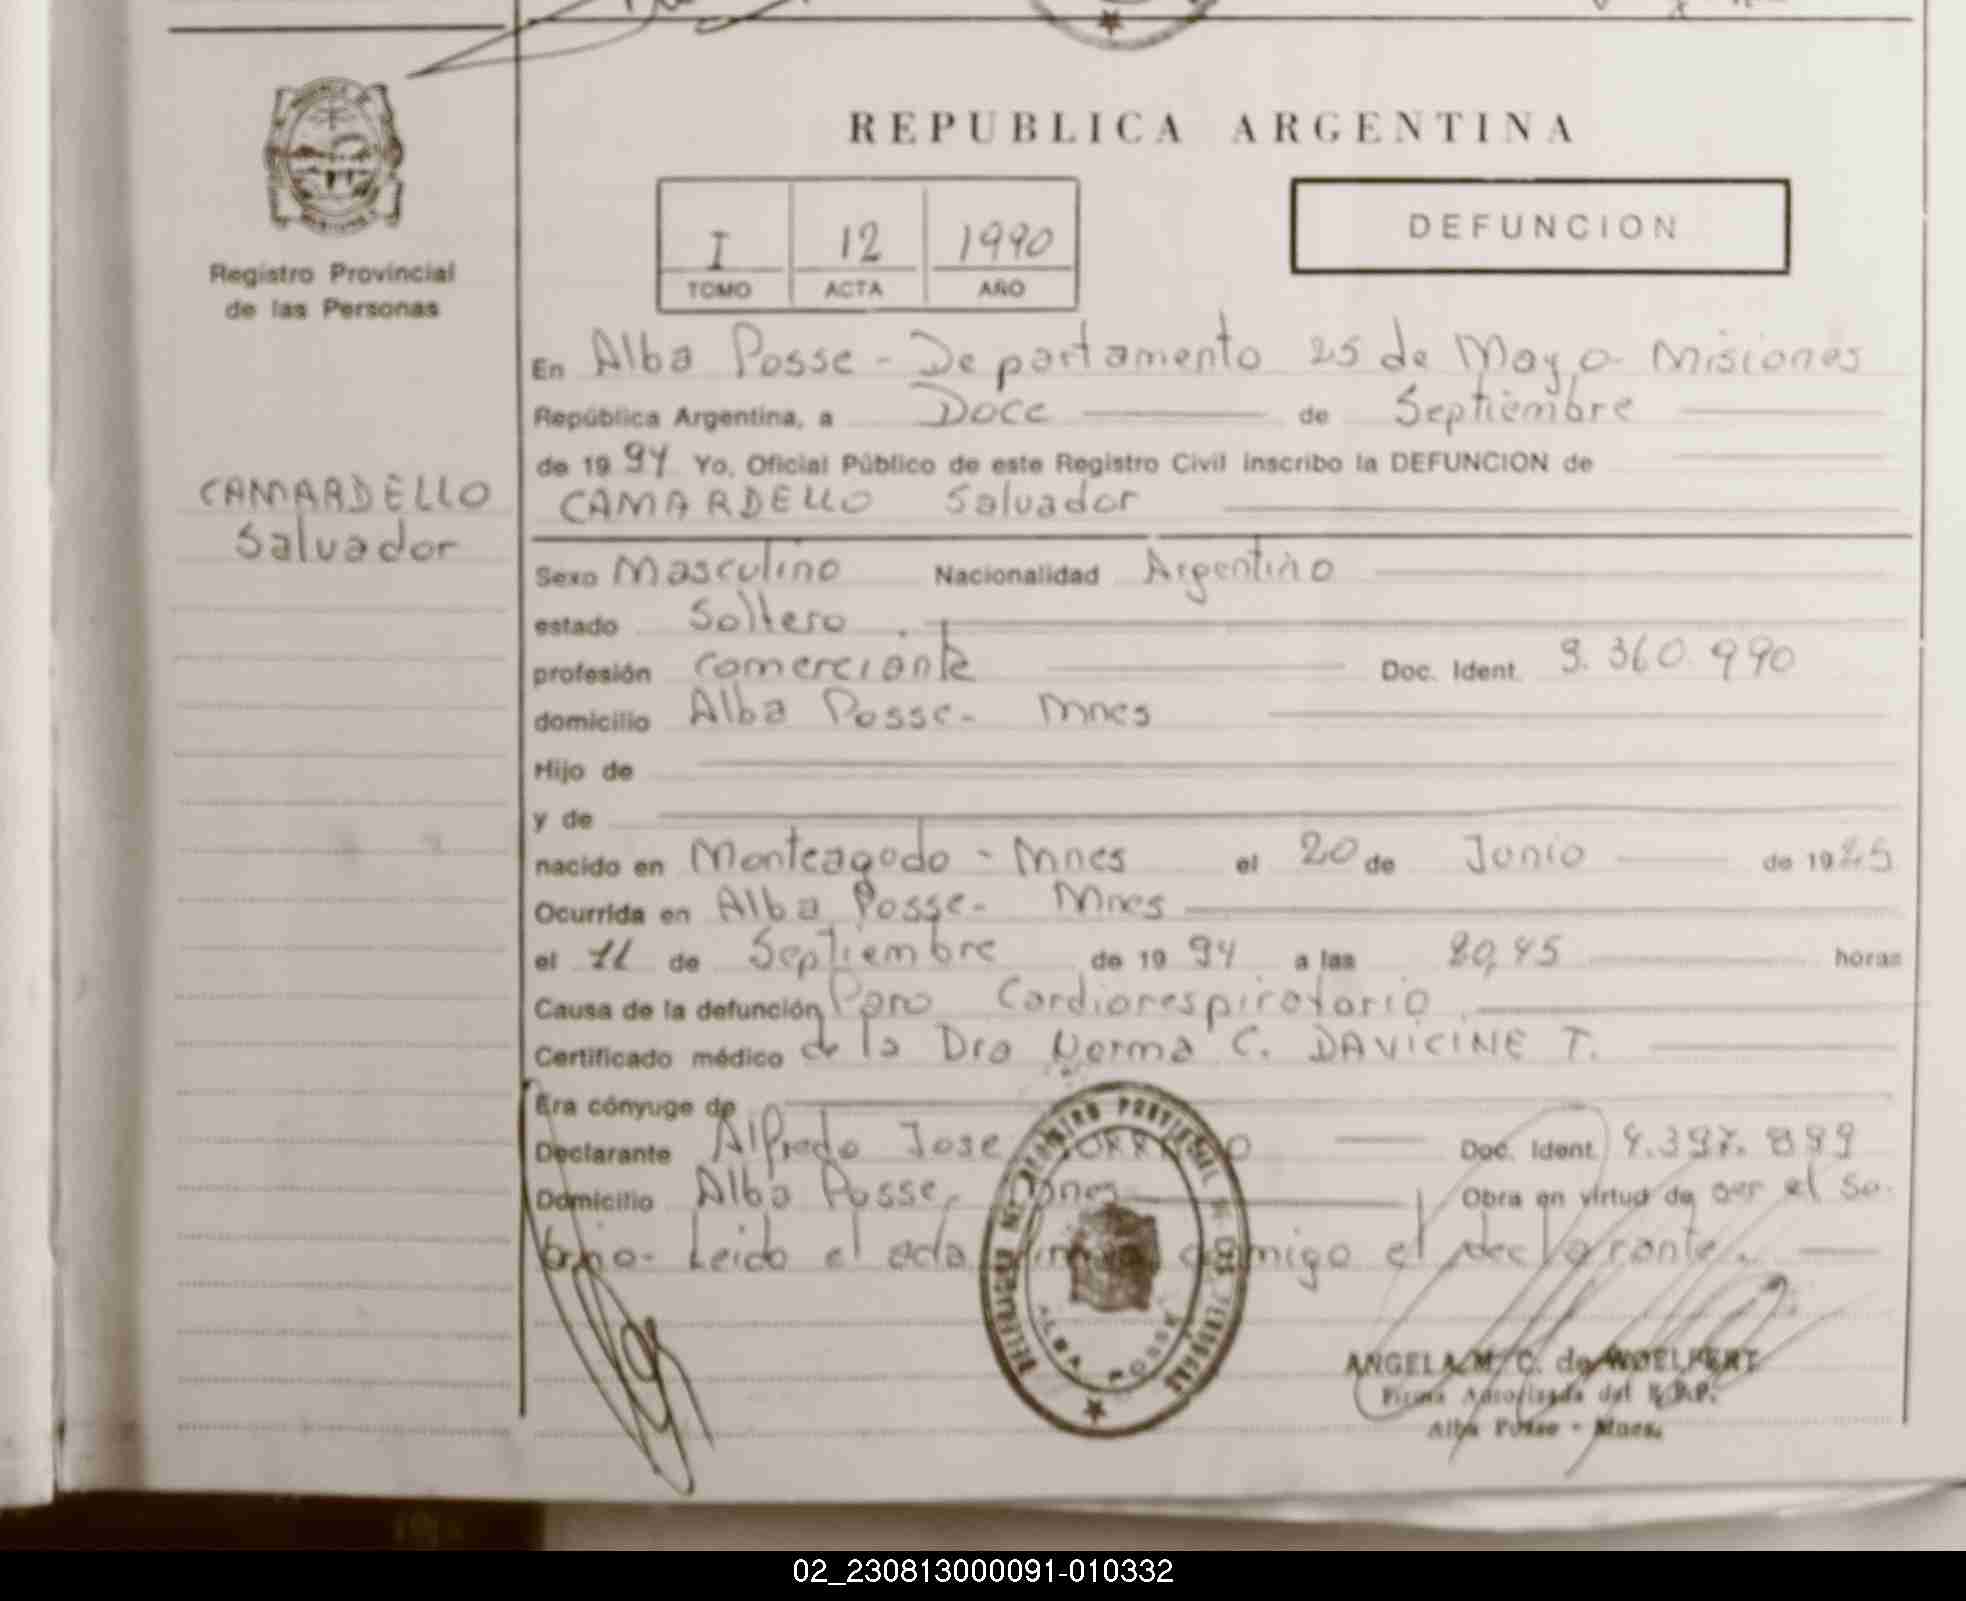 REPUBLICA ARGENTINA
DEFUNCION
I 12 1990
TOMO ACTA AÑO
Registro Provincial
de las Personas
En Alba Posse - Departamento 25 de Mayo - Misiones
República Argentina, a Doce de Septiembre
de 1994 Yo, Oficial Público de este Registro Civil inscribo la DEFUNCION de
CAMARDELLO Salvador
CAMARDELLO
Salvador
Sexo Masculino Nacionalidad Argentino
estado Soltero.
profesión comerciante Doc. Ident. 9.360.990
domicilio Alba Posse - Mnes
Hijo de
y de
nacido en Monteagodo - Mnes el 20 de Junio de 1925
Ocurrida en Alba Posse - Mnes
el 11 de Septiembre de 1994 a las 20,45 horas
Causa de la defunción Paro Cardiorespiratorio.
Certificado médico de la Dra Norma C. DAVICINE T.
Era cónyuge de
Declarante Alfredo Jose Doc. Ident. 4.397.899
Domicilio Alba Posse, Mnes Obra en virtud de ser el so-
brino - Leido el acta firma conmigo el declarante.
REGISTRO PROVINCIAL DE LAS PERSONAS
ALBA POSSE
ANGELA M. C. de WOELFERT
Firma Autorizada del R.P.P.
Alba Posse - Mnes.
02_230813000091-010332